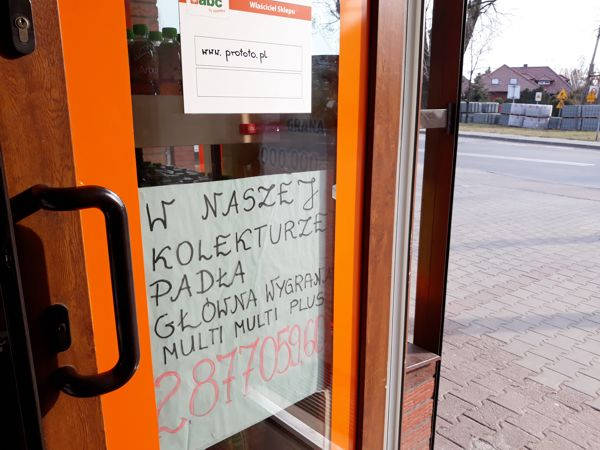 abc
Właściciel Sklepu
www.prototo.pl
GRANA
000 000
W NASZEJ
KOLEKTURZE
PADŁA
GŁÓWNA WYGRANA
MULTI MULTI PLUS
2877059,60